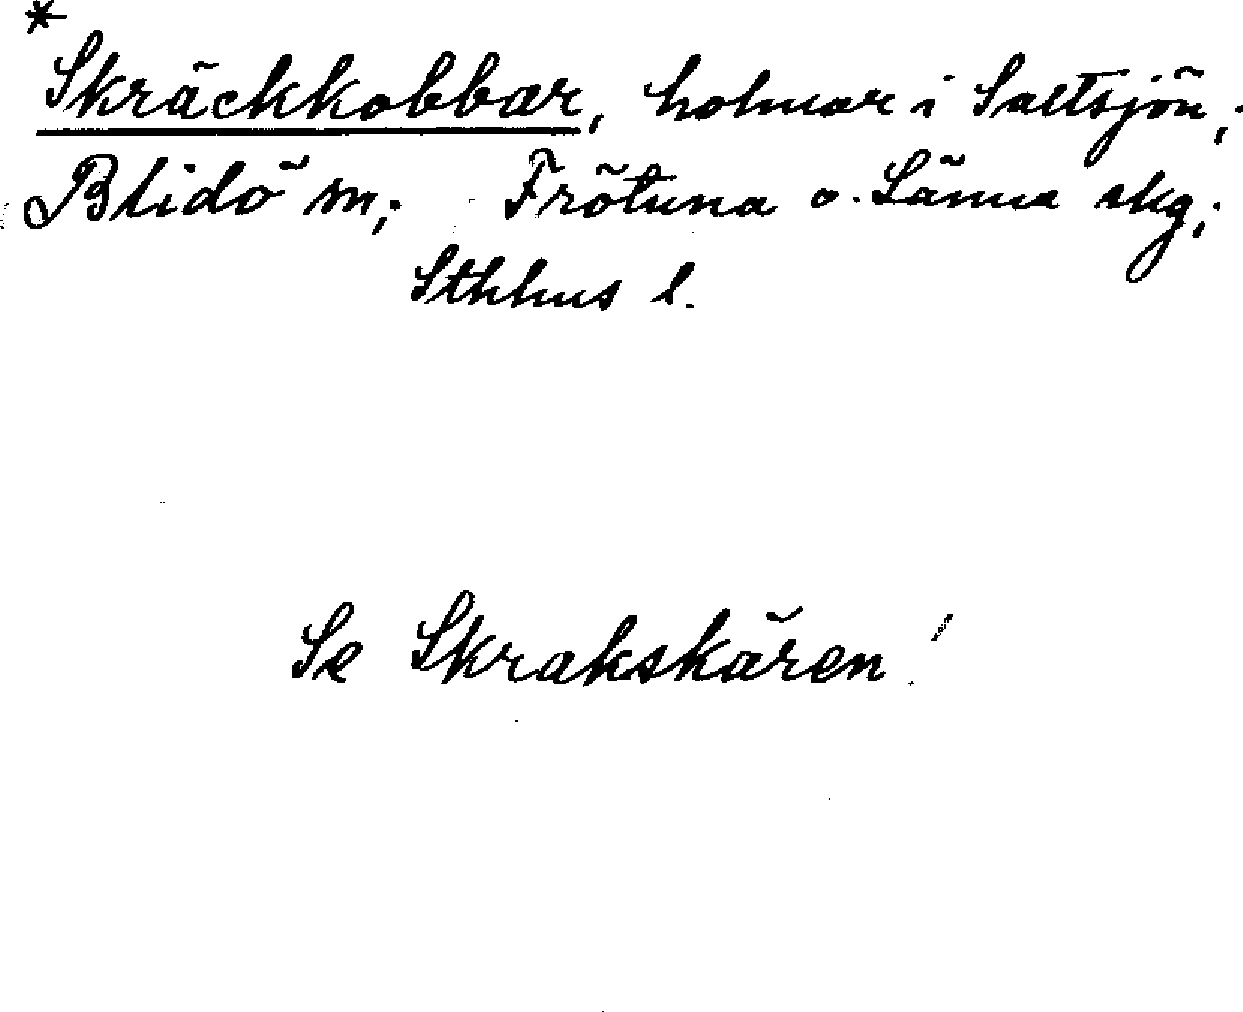 *
Skräckkobbar, holmar i Saltsjön;
Blidö sn; Frötuna o. Länna skg;
Sthlms l.
Se Skrakskären!